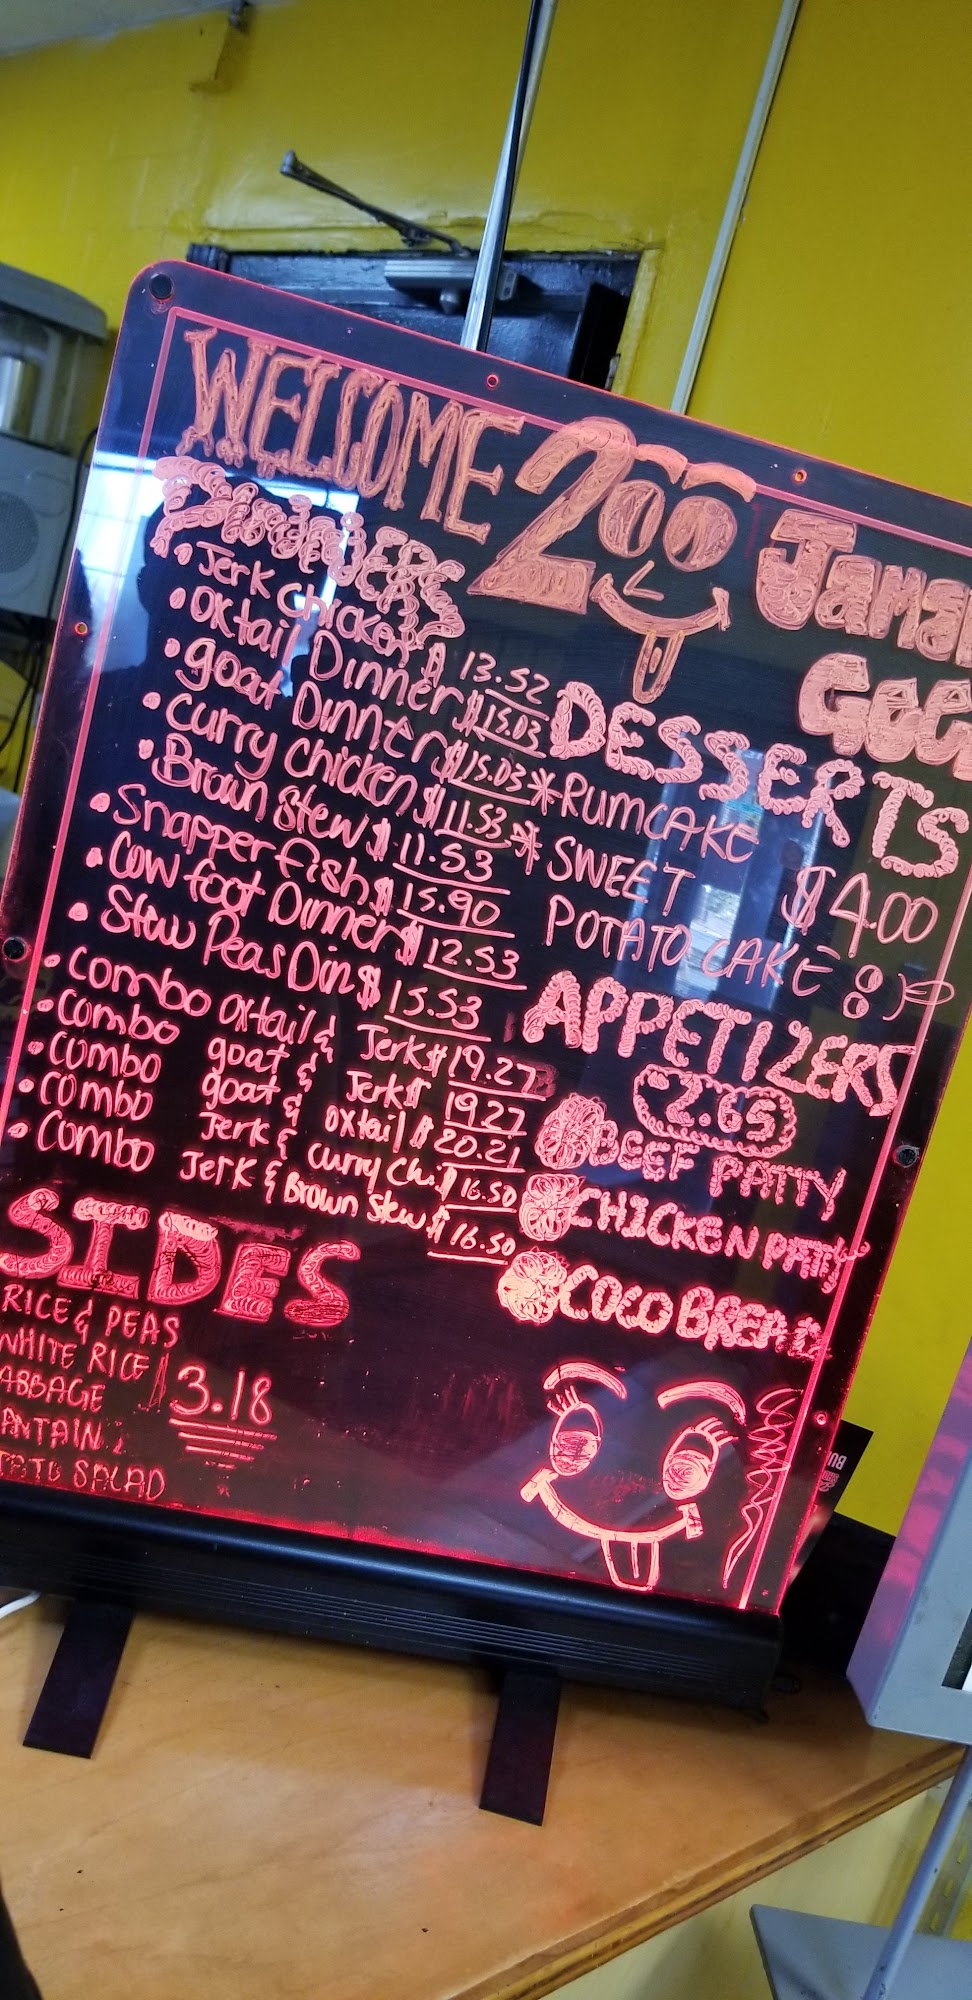 WELCOME 2OO
DINNERS
• Jerk chicken $ 13.52
• Oxtail Dinner $ 15.03
• goat Dinner $ 15.03
• curry chicken $ 11.53
• Brown stew $ 11.53
• Snapper fish $ 15.90
• Cow foot Dinner $ 12.53
• Stew Peas Din $ 15.53
• combo oxtail & Jerk $ 19.27
• combo goat & Jerk $ 19.27
• combo goat & oxtail $ 20.21
• combo Jerk & curry Chi. $ 16.50
• combo Jerk & Brown stew $ 16.50
SIDES
RICE & PEAS
WHITE RICE $ 3.18
ABBAGE
ANTAIN
TATO SALAD
DESSERTS
* RUMCAKE
* SWEET $4.00
POTATO CAKE 8)
APPETIZERS
2.65
BEEF PATTY
CHICKEN PATTY
COCO BREAD